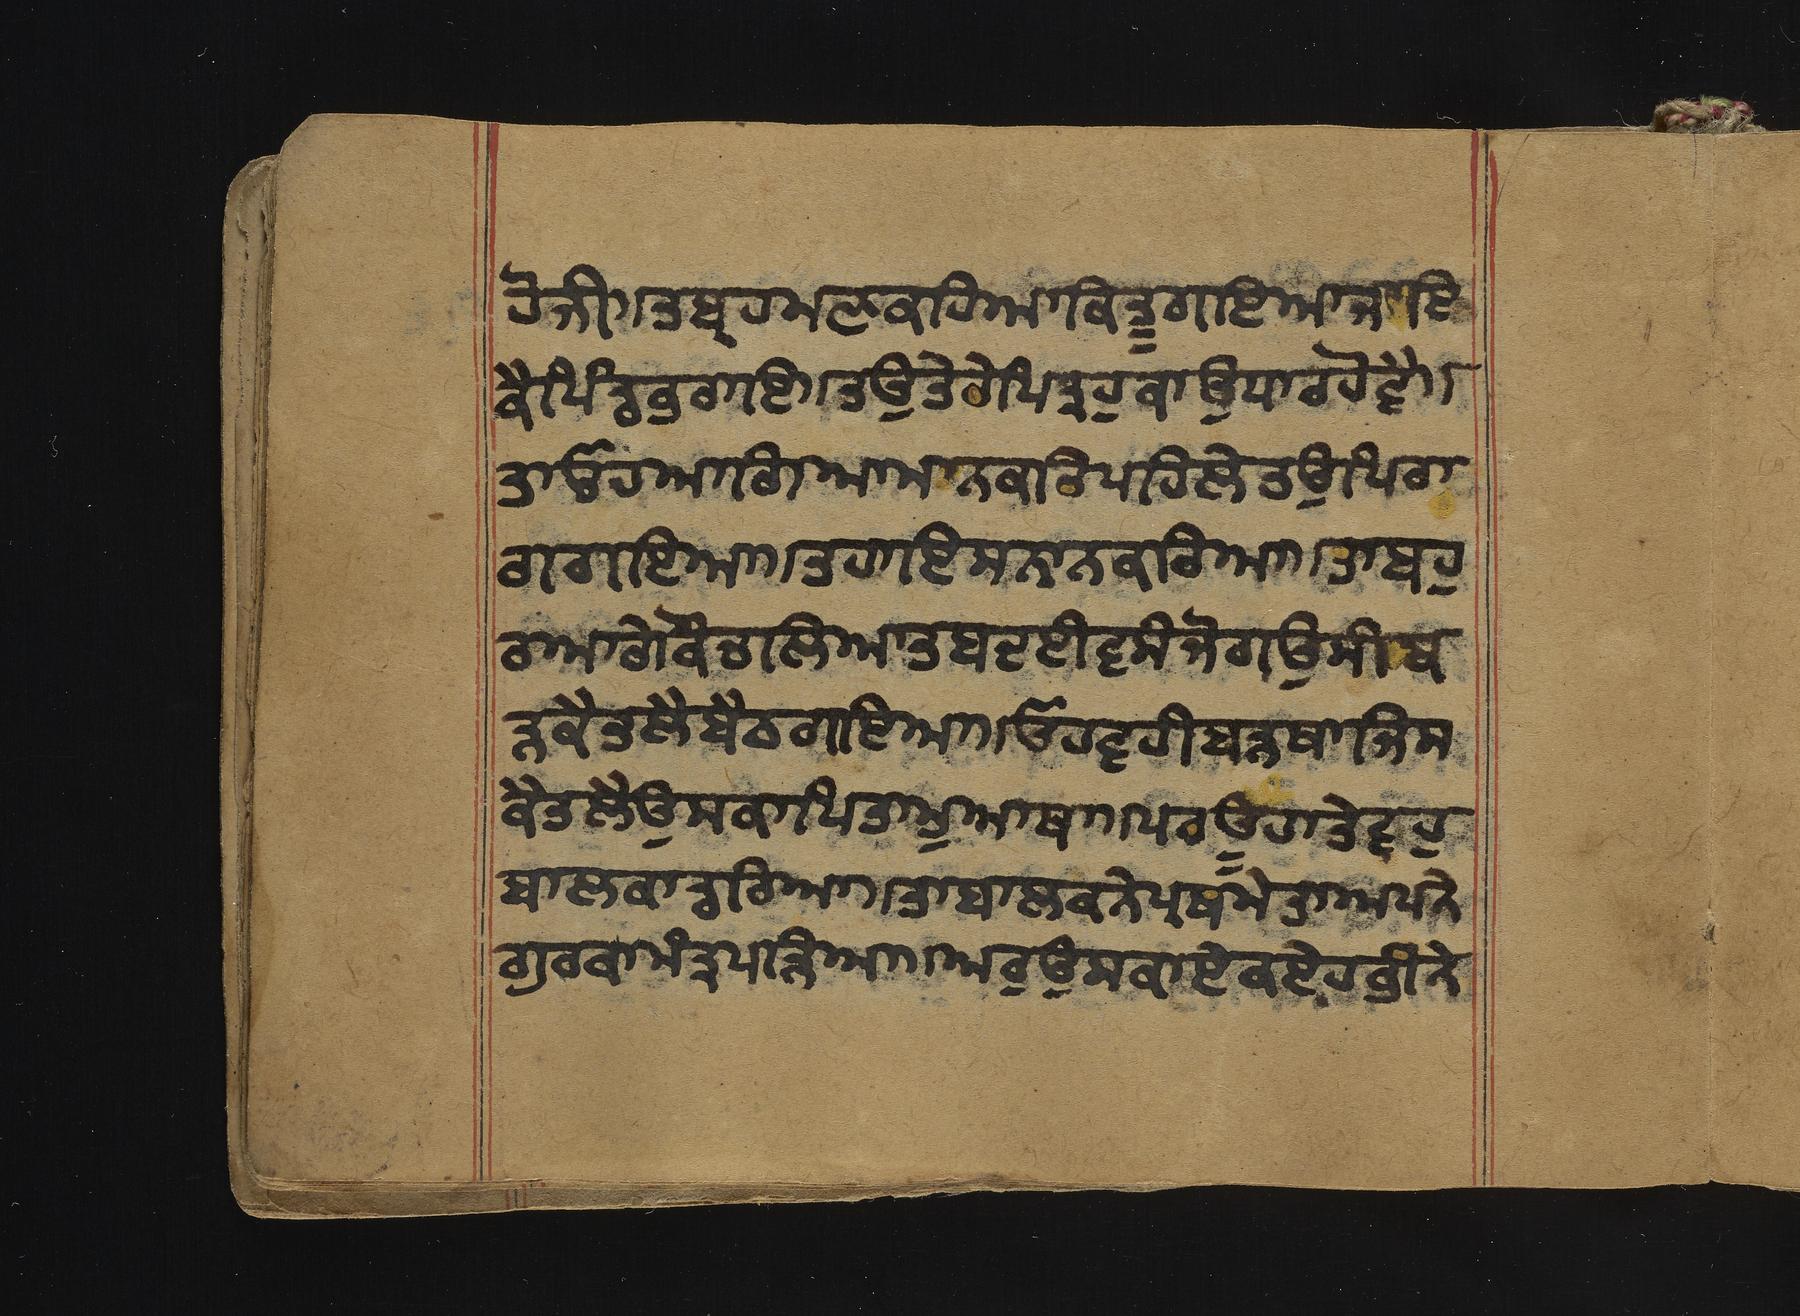 ਹੋਜੀ।ਤਬ੍ਰਹਮਣਕਹਿਆਕਿਤੂਗਾਇਆਜਾਇ
ਕੈਪਿੰਤ੍ਰਕਰਾਇ।ਤਉਤੇਰੇਪਿਤ੍ਰਹੁਕਾਉਧਾਰਹੋਵੈ।
ਤਾਓਹਆਗਿਆਮਾਨਕਰਿਪਹਿਲੇਤਉਪਿਰਾ
ਗਗਾਇਆ।ਤਹਾਇਸਨਾਨਕਰਿਆ।ਤਾਬਹੁ
ਰਆਗੇਕੌਚਾਲਿਆਤਬਦਈਵਸੰਜੋਗਉਸੀਬ
ੜਕੈਤਲੈਬੈਠਗਾਇਆ।ਓਹਵਹੀਬੜਥਾਜਿਸ
ਕੈਤਲੈਉਸਕਾਪਿਤਾਮੁਆਥਾ।ਪਰਊਹਾਤੇਵਹੁ
ਬਾਲਕਾਤੁਰਿਆ।ਤਾਬਾਲਕਨੇਪ੍ਰਥਮੇਤਾਅਪਨੇ
ਗੁਰਕਾਮੰਤ੍ਰਪੜਿਆ।ਅਰੁਉਸਕਾਏਕਏਹਗੁੀਨੇ